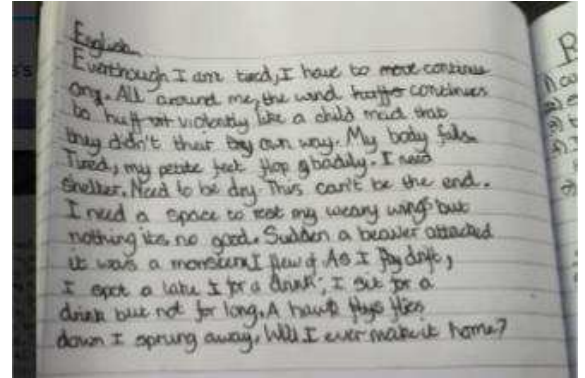 English
Eventhough I am tired, I have to move continue
on. All around me, the wind huffs continues
to huff out violently like a child mad that
they didn't their own way. My body falls
Tired, my petite feet flop badily. I need
shelter. Need to be dry. This can't be the end.
I need a space to rest my weary wings but
nothing its no good. Sudden a beaver attacked
it was a monster I flew of. As I fly drift,
I spot a lake I for a drink, I sit for a
drink but not for long. A hawk flys flies
down I sprung away. Will I ever make it home?